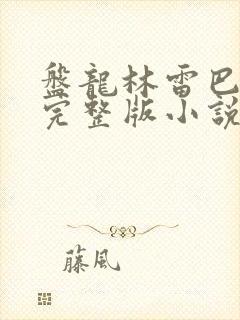 盤龍林雷巴
完整版小說
藤風